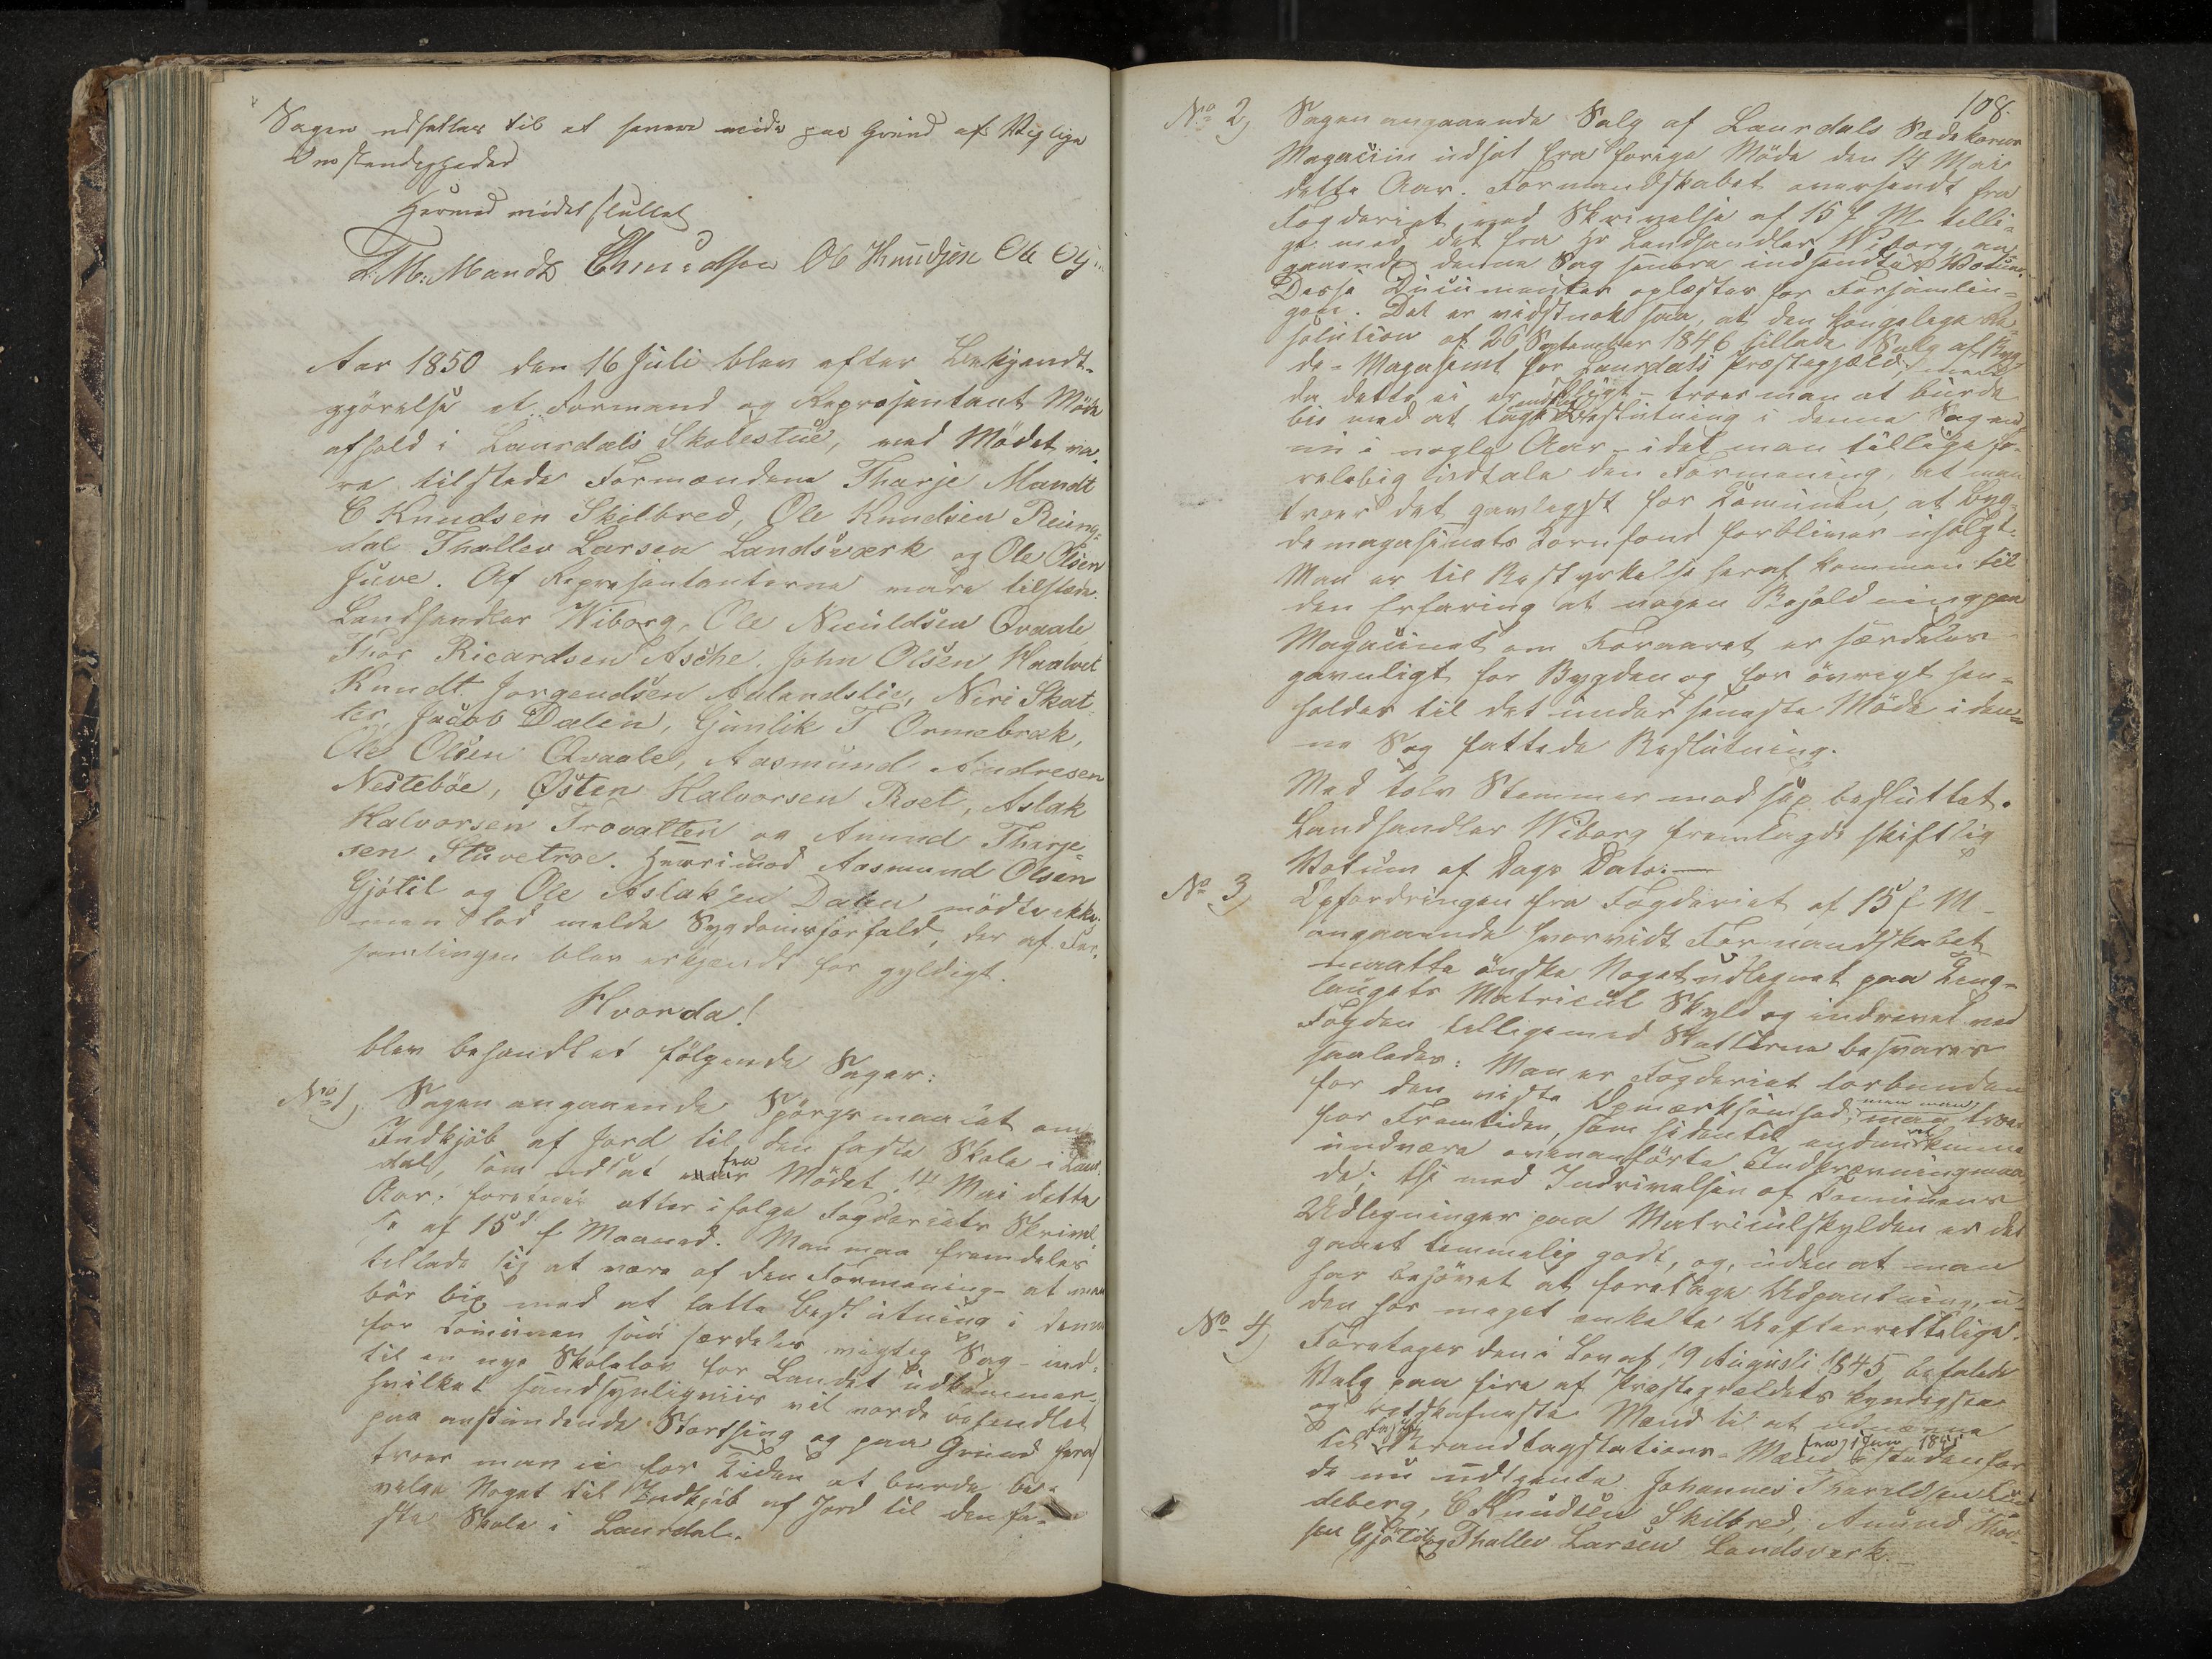 Sagen udsættes til et senere møde paa Grund af Vigtige
Omstændigheder
Hermed mödet sluttet
T. M. Mandt CKnudsen Ole Knudsen Ole
Aar 1850 den 16 Juli blev efter Bekjendt-
gjörelse et Formand og Repræsentant Möde
afhold i Laurdals Skolestue, ved Mödet va-
re tilstede Formændene Tharje Mandt
C Knudsen Skilbred, Ole Knudsen Reing-
dal Thallev Larsen Landsværk og Ole Olsen
Juve. Af Repræsentanterne vare tilstede.
Landhandler Wiborg, Ole Niculdsen Qvaale
Thor Ricardsen Asche. John Olsen Haatvet
Knudt Jorgendsen Aalandslie, Niri Skat-
ter, Jacob Dalen, Gunlik T Ormebrak,
Ole Olsen Qvaale, Aasmund Andresen
Nesteböe, Østen Halvorsen Roet, Aslak
Halvorsen Trovatten og Anund Tharje-
sen Stuvetroe. Herimod Aasmund Olsen
Gjötil og Ole Aslaksen Dalen mödte ikke,
men lod melde Sygdomsforfald, der af For-
samlingen blev erkjendt for gyldigt.
Hvorda!
blev behandlet fölgende Sager:
No 1, Sagen angaaende Spörgsmaalet om
Indkjöb af Jord til den faste Skole i Laur-
dal, som udsat fra Mödet 14 Mai dette
Aar. foretoges atter ifolge Fogderiets Skrivel-
se af 15d f Maaned. Man maa fremdeles
tillade sig at være af den Formening - at man
bör bie med at fatte Beslutning i denne
for Communen saa særdeles vigtig Sag - ind-
til en nye Skolelov for Landet udkommer,
hvilket sandsynligviis vil vorde behandlet
paa anstundende Storthing og paa Grund heraf
troer man ei for Tiden at burde be-
vilge Noget til Indkjöb af Jord til den fa-
ste Skole i Laurdal.
108.
No 2, Sagen angaaende Salg af Laurdals Sædekorns
Magaciin udsat fra forige Möde den 14 Mai
dette Aar. Formandskabet oversendt fra
Fogderiet ved Skrivelse af 15 f M. tilli-
ge med det fra Hr Landhandler Wiborg an-
gaaende denne Sag senere indsendte Votum.
Disse Documenter oplæstes for Forsamlin-
gen. Det er vidstnok saa, at den kongelige Re-
solution af 26 September 1846 tillade Salg af Byg-
de-Magasinet for Laurdals Præstegjæld men
da dette ei er - troer man at burde
bie med at tage Beslutning i denne Sag end
nu i nogle Aar - idet man tillige fo-
relöbig udtale den Formening, at man
troer det gavnligst for Communen, at Byg-
demagasinets Kornfond forbliver usolgt.
Man er til Bestyrkelse heraf kommen til
den Erfaring at nogen Beholdning paa
Magacinet om Foraaret er særdeles
gavnligt for Bygden og for övrigt hen-
holdes til det under seneste Möde i den-
ne Sag fattede Beslutning.
Med tolv Stemmer mod sex besluttet.
Landhandler Wiborg fremlagde skriftlig
Votum af Dags Dato. —
No 3, Opfordringen fra Fogderiet af 15 f M -
angaaende hvorvidt Formandskabet
maatte önske Noget udlignet paa Ting-
laugets Matricul Skyld og indrevet ved
Fogden tilligemed Skatterne besvares
saaledes: Man er Fogderiet forbunden
for den viste Opmærksomhed, men man troer
for Fremtiden, som hidentil endnu at kunne
undvære ovenanförte Indkrævningmaa-
de; thi med Indrivelsen af Communens
Udligninger paa Matriculskylden er det
gaaet temmelig godt, og, uden at man
har behövet at foretage Udpantning, u-
den hos meget enkelte Uefterrettelige.
No 4, Foretoges den i Lov af 19 Augusti 1845 befalede
Valg paa fire af Præstegjældets kyndigste
og retskafneste Mænd til at udnævne
til Brandtagstations-Mænd istedenfor
de nu udtraadte Johannes Tharaldsen Lun-
deberg, C Knudsen Skilbred, Anund Thor-
sen Gjötil og Thallev Larsen Landsverk.